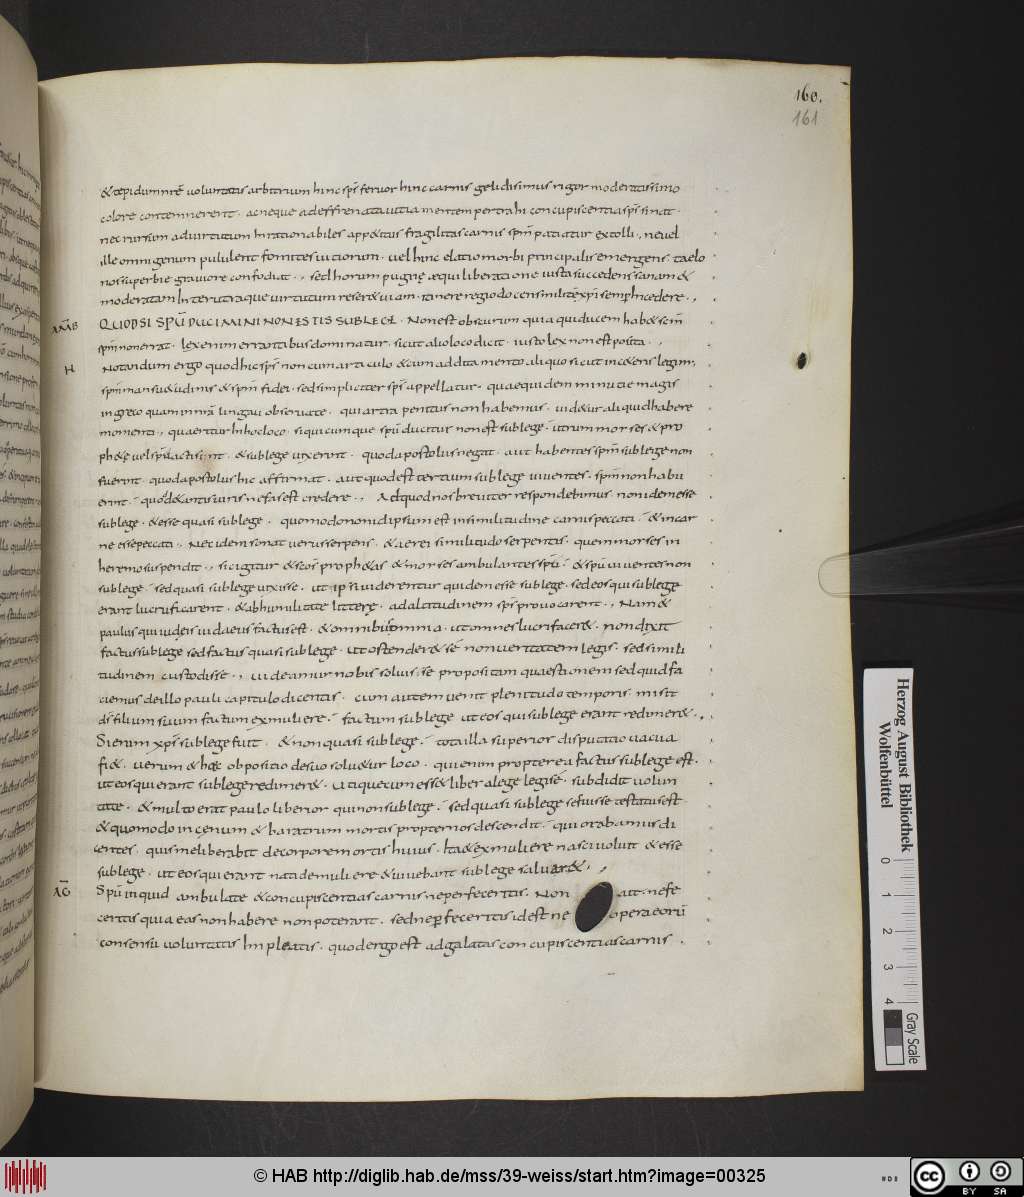 160.
161
&tepidum inrē uoluntatis arbitrium hinc sp̄s feruor hinc carnis gelidissimus rigor moderatissimo
colore contemnerent. ac neque ad effrenata uitia mentem pertrahi concupiscentia sp̄s sinat.
nec rursum ad uirtutum inrationabiles app&itus fragilitas carnis sp̄m patiatur extolli., ne uel
ille omnigenum pululent fomites uitiorum. uel hinc elatio morbi principalis emergens. taelo
nos superbie grauiore confodiat., sed horum pugne aequi liberatione iusta succedens sanam &
moderatam Inter utraque uirtutum reser& uiam.
AMB QUODSI SPŪ DUCIMINI NON ESTIS SUB LEGE. Non est obscurum quia qui ducem hab& sc̄m
sp̄m non errat. lex enim errantibus dominatur. sicut alio loco dicit. iusto lex non est posita.,
H Notandum ergo quod hic sp̄s non cum articulo & cum additamento aliquo sicut in c&eris legim;
sp̄m mansu&udinis & sp̄m fidei. sed simpliciter sp̄s appellatur. quae quidem minutie magis
in greco quam in nr̄a lingua obseruate. qui artra penitus non habemus. uid&ur aliquid habere
momenti., quaeritur In hoc loco. si quicumque spū ducitur non est sub lege. utrum moses & pro
ph&ę uel sp̄u acti sint. & sub lege uixerunt. quod apostolus negat. aut habentes sp̄m sub lege non
fuerint. quod apostolus hic affirmat. aut quod est tertium sub lege uiuentes. sp̄m non habu
erint. quod de tantis uiris nefas est credere., Ad quod nos breuiter respondebimus. non idem esse
sub lege. & esse quasi sub lege. quomodo non id ipsum est in similitudine carnis peccati. & in car
ne esse peccati., Nec idem sonat uerus serpens. & aerei similitudo serpentis. quem moses in
heremo suspendit., sic igitur & sc̄os proph&as & moses ambulantes spū. & spū uiuentes non
sub lege. sed quasi sub lege uixisse. ut ipsi uiderentur quidem esse sub lege. sed eos qui sub lege
erant lucrificarent. & ab humilitate litterę. ad altitudinem sp̄s prouocarent., Nam &
paulus qui iudeis iudaeus factus est. & omnibus omnia. ut omnes lucrifacer&. non dixit
factus sub lege sed factus quasi sub lege. ut ostender& se non ueritatem legis. sed simili
tudinem custodisse., uideamur nobis soluisse propositam quaestionem sed quid fa
ciemus de illo pauli capitulo dicentis. cum autem uenit plenitudo temporis. misit
ds̄ filium suum factum ex muliere. factum sub lege ut eos qui sub lege erant redimer&.,
Si enim xp̄s sub lege fuit. & non quasi sub lege. tota illa superior disputatio uacua
fi&. uerum & hęc obpositio de suo solu&ur loco. qui enim propterea factus sub lege est.
ut eos qui erant sub lege redimer&. utique cum ess& liber a lege legi se. subdidit uolun
tate. & multo erat paulo liberior qui non sub lege. sed quasi sub lege se fuisse testatus est
& quomodo in cenum & baratrum mortis propter nos descendit. qui orabamus di
centes. quis me liberabit de corpore mortis huius. Ita & ex muliere nasci uoluit & esse
sub lege. ut eos qui erant nati de muliere & uiuebant sub lege saluar&.,
AG Spū inquid ambulate & concupiscentias carnis ne perfeceritis. Non ait. ne fe
ceritis quia eas non habere non poterant. sed ne perfeceritis id est ne opera eorū
consensu uoluntatis Impleatis. quod ergo est ad galatas concupiscentias carnis.
Herzog August Bibliothek
Wolfenbüttel
0 1 2 3 4
Gray Scale
© HAB http://diglib.hab.de/mss/39-weiss/start.htm?image=00325
cc BY SA